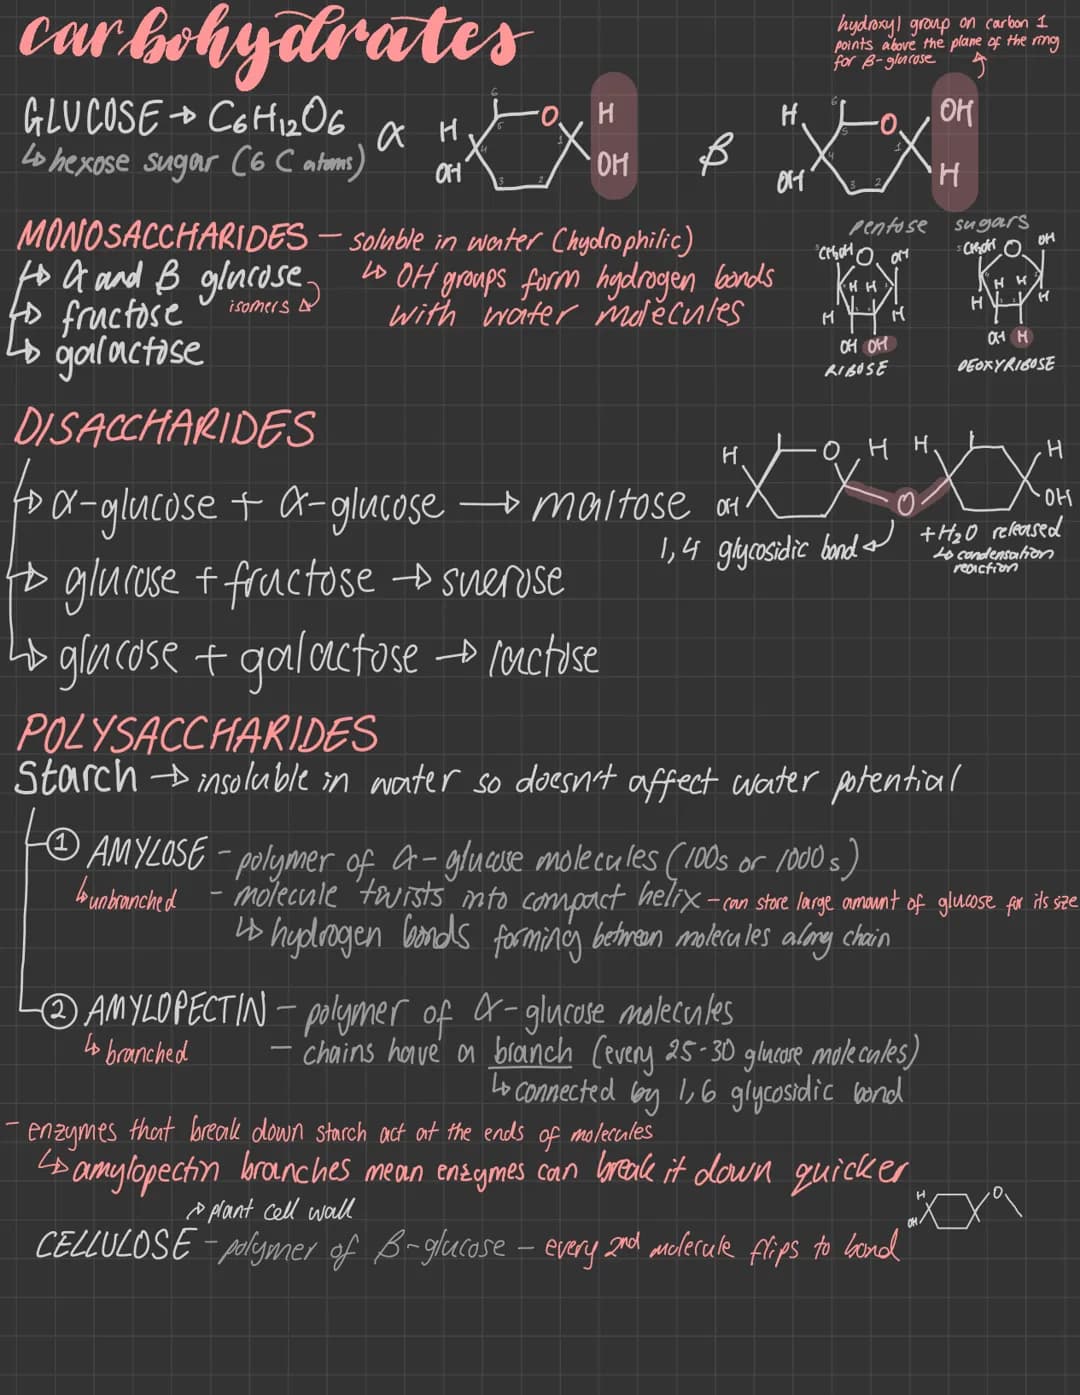 carbohydrates
hydroxyl group on carbon 1
points above the plane of the ring
for β-glucose
GLUCOSE → C6H12O6
↳ hexose sugar (6 C atoms)
α
H
OH
O
H
OH
6
5
4
3
2
1
β
H
OH
O
OH
H
6
5
4
3
2
1
MONOSACCHARIDES - soluble in water (hydrophilic)
↳ OH groups form hydrogen bonds
with water molecules
→ α and β glucose
isomers
→ fructose
↳ galactose
pentose sugars
CH2OH O OH
H H
H H
OH OH
RIBOSE
CH2OH O OH
H H
H H
OH H
DEOXYRIBOSE
DISACCHARIDES
→ α-glucose + α-glucose → maltose
H O H H H
OH O OH
1,4 glycosidic bond
+ H2O released
↳ condensation
reaction
→ glucose + fructose → sucrose
↳ glucose + galactose → lactose
POLYSACCHARIDES
Starch → insoluble in water so doesn't affect water potential
① AMYLOSE - polymer of α-glucose molecules (100s or 1000s)
↳ unbranched - molecule twists into compact helix - can store large amount of glucose for its size
↳ hydrogen bonds forming between molecules along chain
② AMYLOPECTIN - polymer of α-glucose molecules
↳ branched - chains have a branch (every 25-30 glucose molecules)
↳ connected by 1,6 glycosidic bond
- enzymes that break down starch act at the ends of molecules
↳ amylopectin branches mean enzymes can break it down quicker
→ plant cell wall
CELLULOSE - polymer of β-glucose - every 2nd molecule flips to bond
H
OH
O